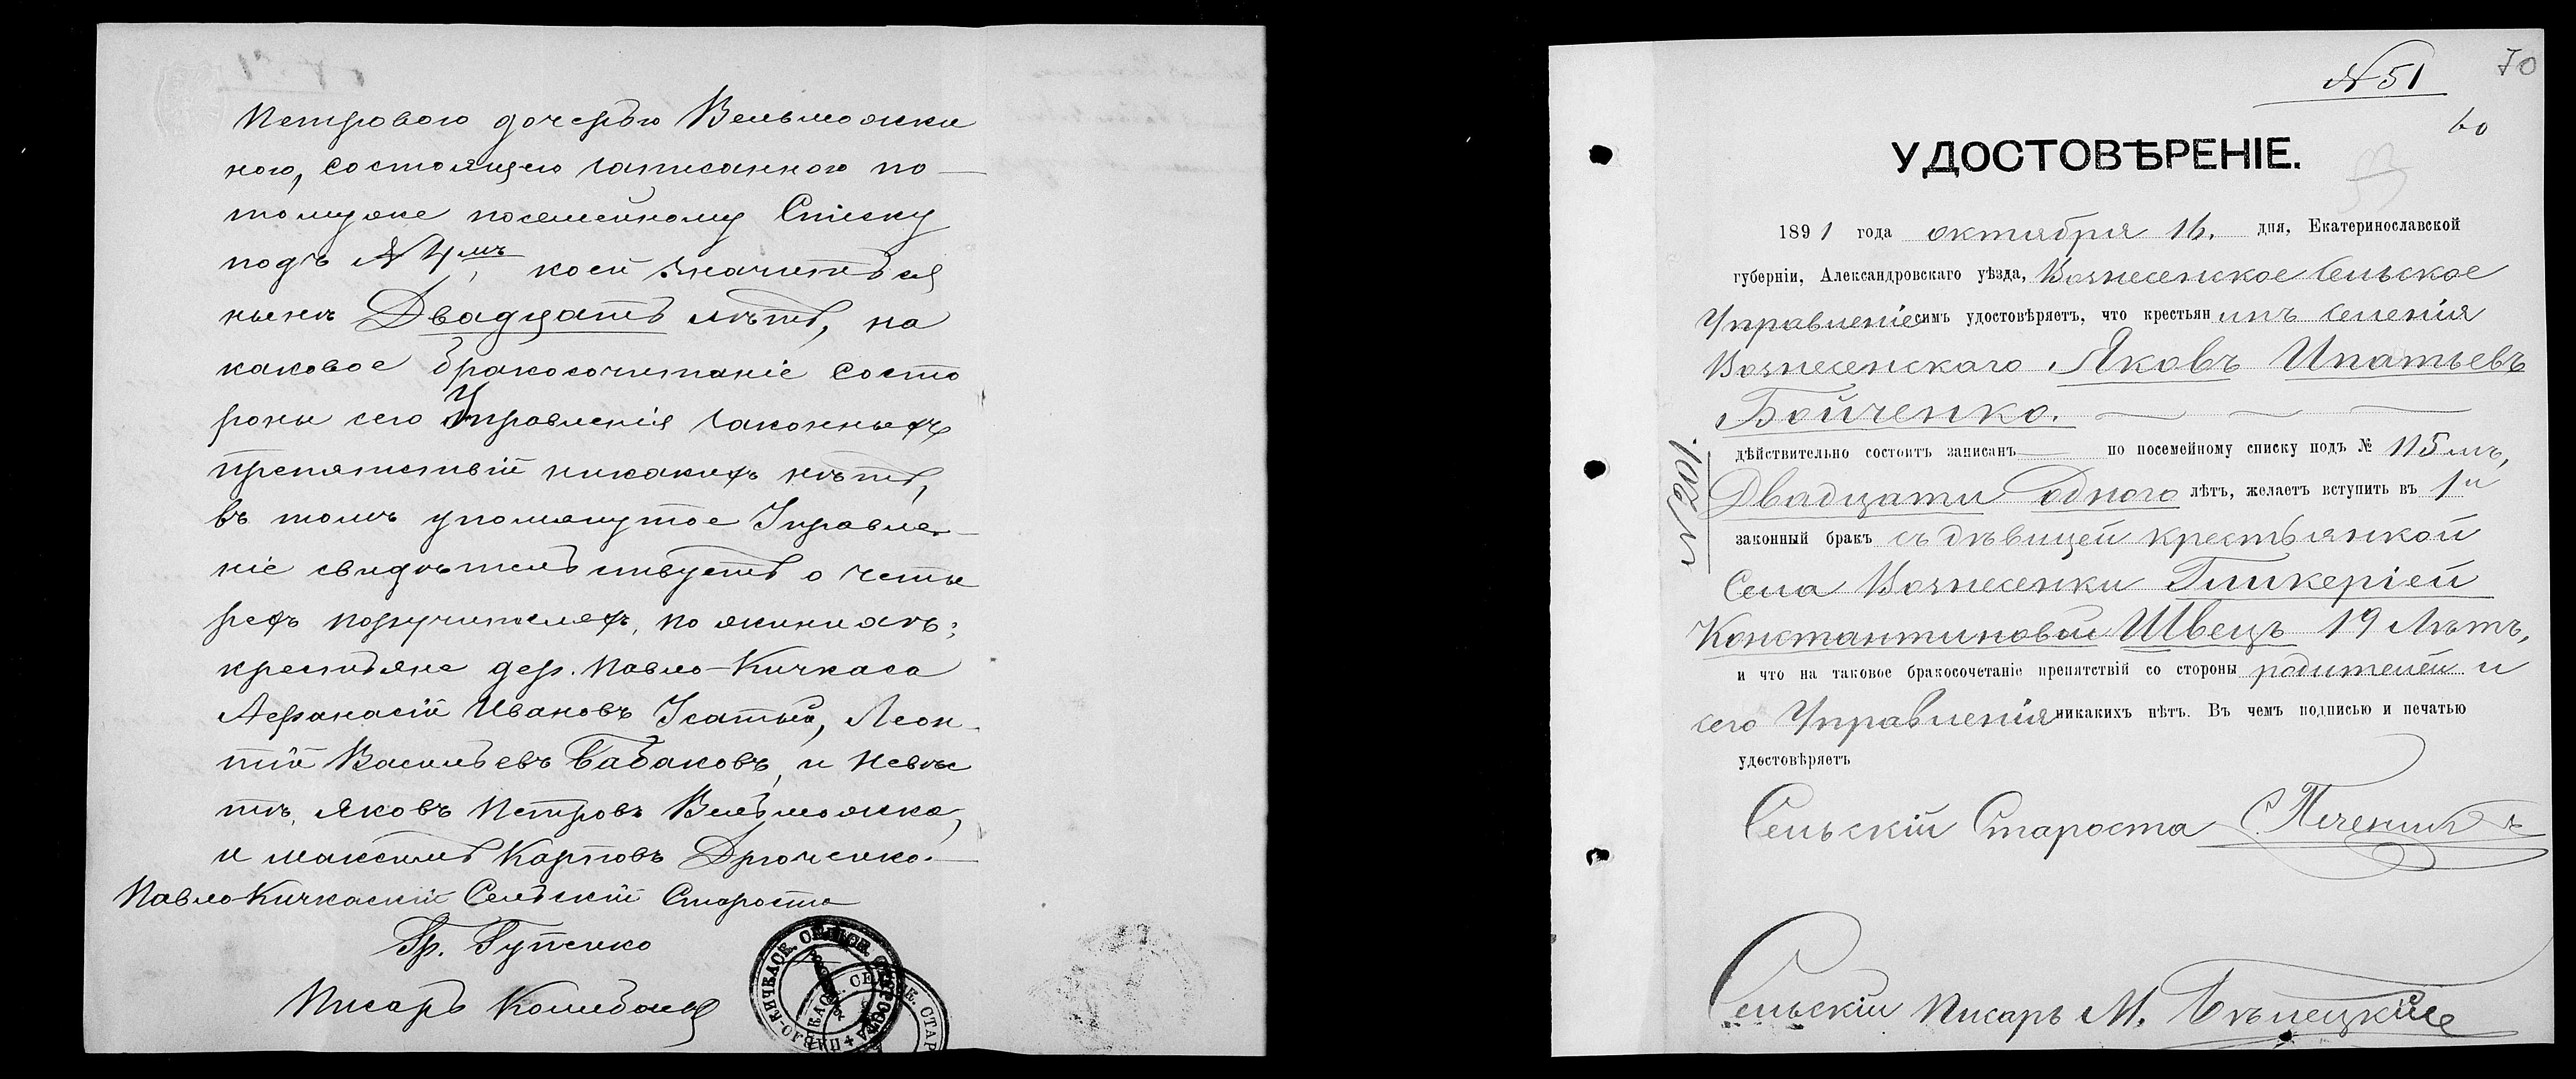 Петровою дочерью Вельможки
ною, состоящею записанною по—
томуже посемейному Списку
подъ № 4мъ, коей значится
нынѣ Двадцать лѣтъ, на
каковое бракосочитаніе состо
роны сего Управленія законныхъ
препятствій никакихъ нѣтъ,
въ томъ упомянутое Управле-
ніе свидѣтельствуетъ о четы
рехъ поручителяхъ, по женихѣ:
крестьяне дер. Павло-Кичкаса
Афанасій Ивановъ Усатый, Леон-
тій Васильевъ Бабаковъ, и невѣс
тѣ, Яковъ Петровъ Вельможка,
и Максимъ Карповъ Дрюченко.—
Павло-Кичкаскій Сельскій Староста
Гр. Гупенко
Писарь
№ 51
70
УДОСТОВѢРЕНІЕ.
1891 года октября 16. дня, Екатеринославской
губерніи, Александровскаго уѣзда, Вознесенское Сельское
Управленіе симъ удостовѣряетъ, что крестьянинъ селенія
Вознесенскаго Яковъ Ипатьевъ
Бойченко.
дѣйствительно состоитъ записанъ по посемейному списку подъ № 115мъ,
Двадцати одного лѣтъ, желаетъ вступить въ 1й
законный бракъ съ дѣвицей крестьянкой
Села Вознесенки Гликеріей
Константиновой Швецъ 19 лѣтъ,
и что на таковое бракосочетаніе препятствій со стороны родителей и
сего Управленія никакихъ нѣтъ. Въ чемъ подписью и печатью
удостовѣряетъ
№ 201.
Сельскій Староста С. Печеникъ
Сельскій Писарь М.